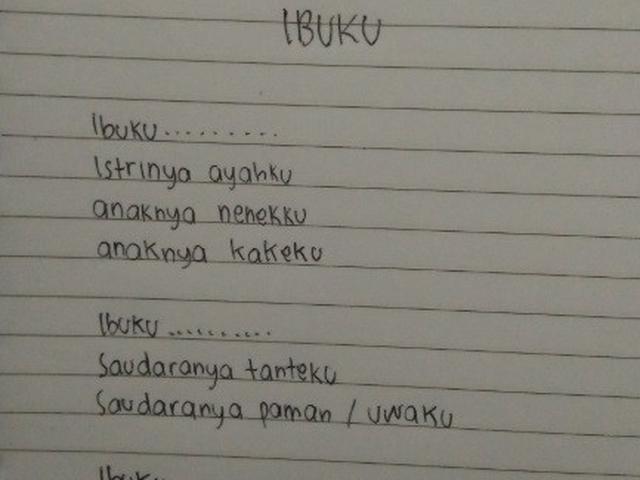 IBUKU
Ibuku.........
Istrinya ayahku
anaknya nenekku
anaknya kakeku
Ibuku..........
Saudaranya tanteku
Saudaranya paman / uwaku
Ibuku